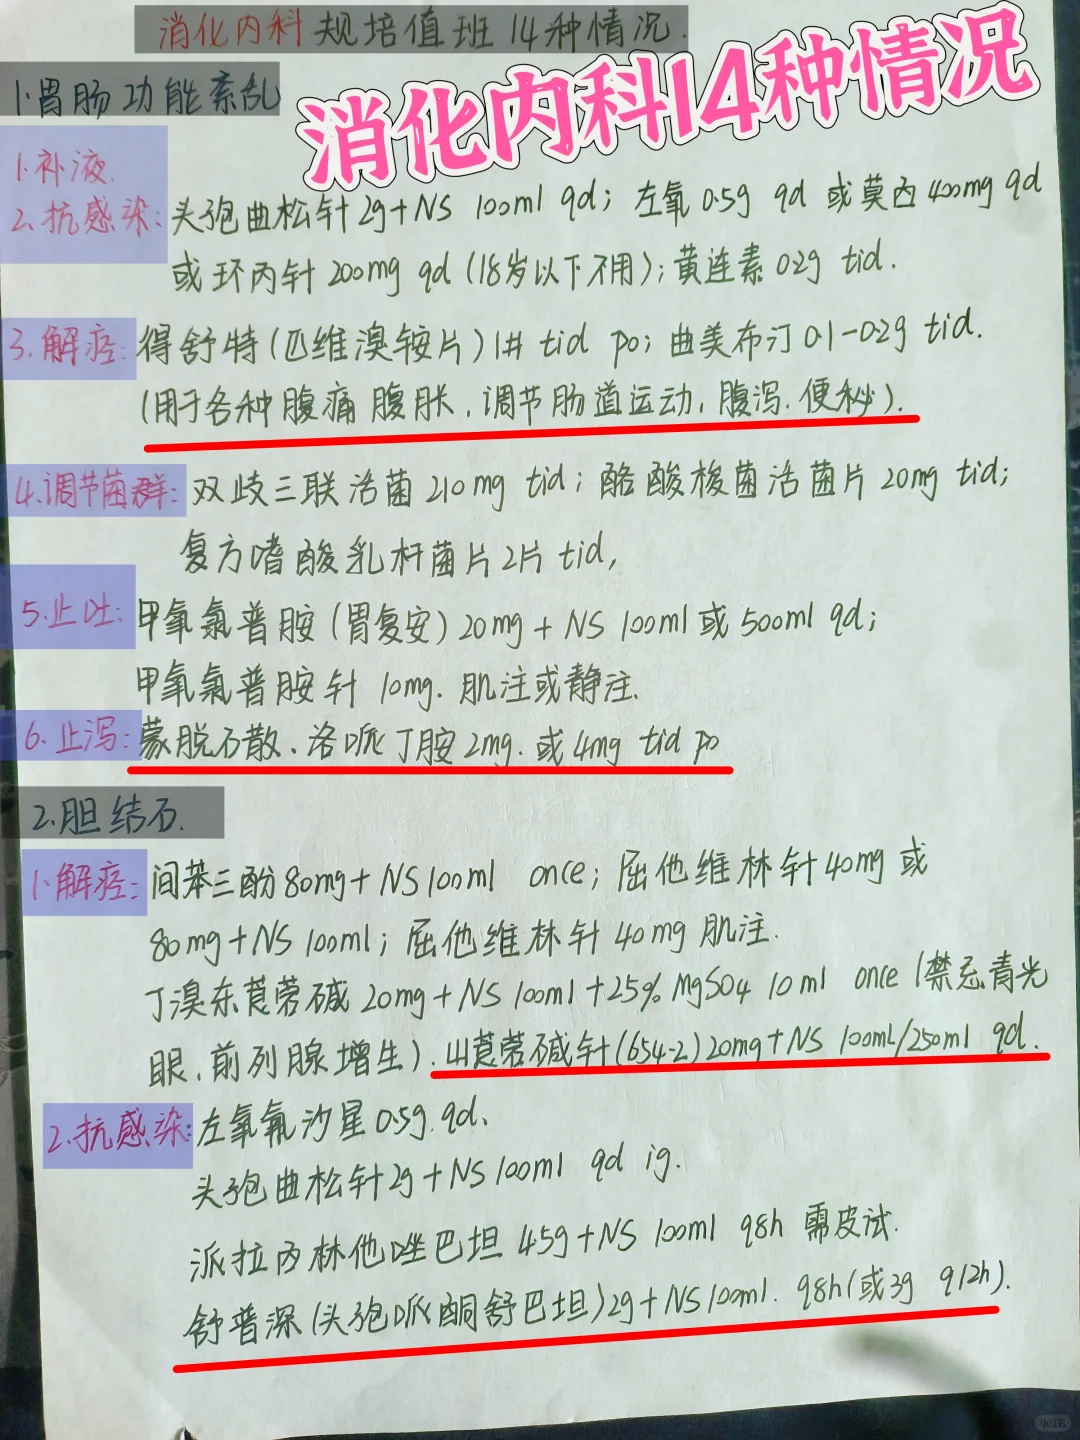 消化内科规培值班14种情况.
消化内科14种情况
1.胃肠功能紊乱
1.补液.
2.抗感染:头孢曲松针2g+NS 100ml qd; 左氧0.5g qd 或莫西400mg qd
或环丙针200mg qd(18岁以下不用);黄连素0.2g tid.
3.解痉:得舒特(匹维溴铵片)1# tid po; 曲美布汀0.1-0.2g tid.
(用于各种腹痛腹胀,调节肠道运动,腹泻.便秘).
4.调节菌群:双歧三联活菌210mg tid; 酪酸梭菌活菌片20mg tid;
复方嗜酸乳杆菌片2片tid,
5.止吐:甲氧氯普胺(胃复安)20mg+NS 100ml或500ml qd;
甲氧氯普胺针10mg.肌注或静注.
6.止泻:蒙脱石散、洛哌丁胺2mg.或4mg tid po
2.胆结石.
1.解痉:间苯三酚80mg+NS100ml once; 屈他维林针40mg或
80mg+NS 100ml; 屈他维林针40mg肌注.
丁溴东莨菪碱20mg+NS 100ml+25% MgSO4 10ml once(禁忌青光
眼.前列腺增生).山莨菪碱针(654-2)20mg+NS 100ml/250ml qd.
2.抗感染:左氧氟沙星0.5g.qd、
头孢曲松针2g+NS100ml qd ig.
派拉西林他唑巴坦4.5g+NS 100ml q8h 需皮试.
舒普深(头孢哌酮舒巴坦)2g+NS100ml. q8h(或3g q12h).
小红书